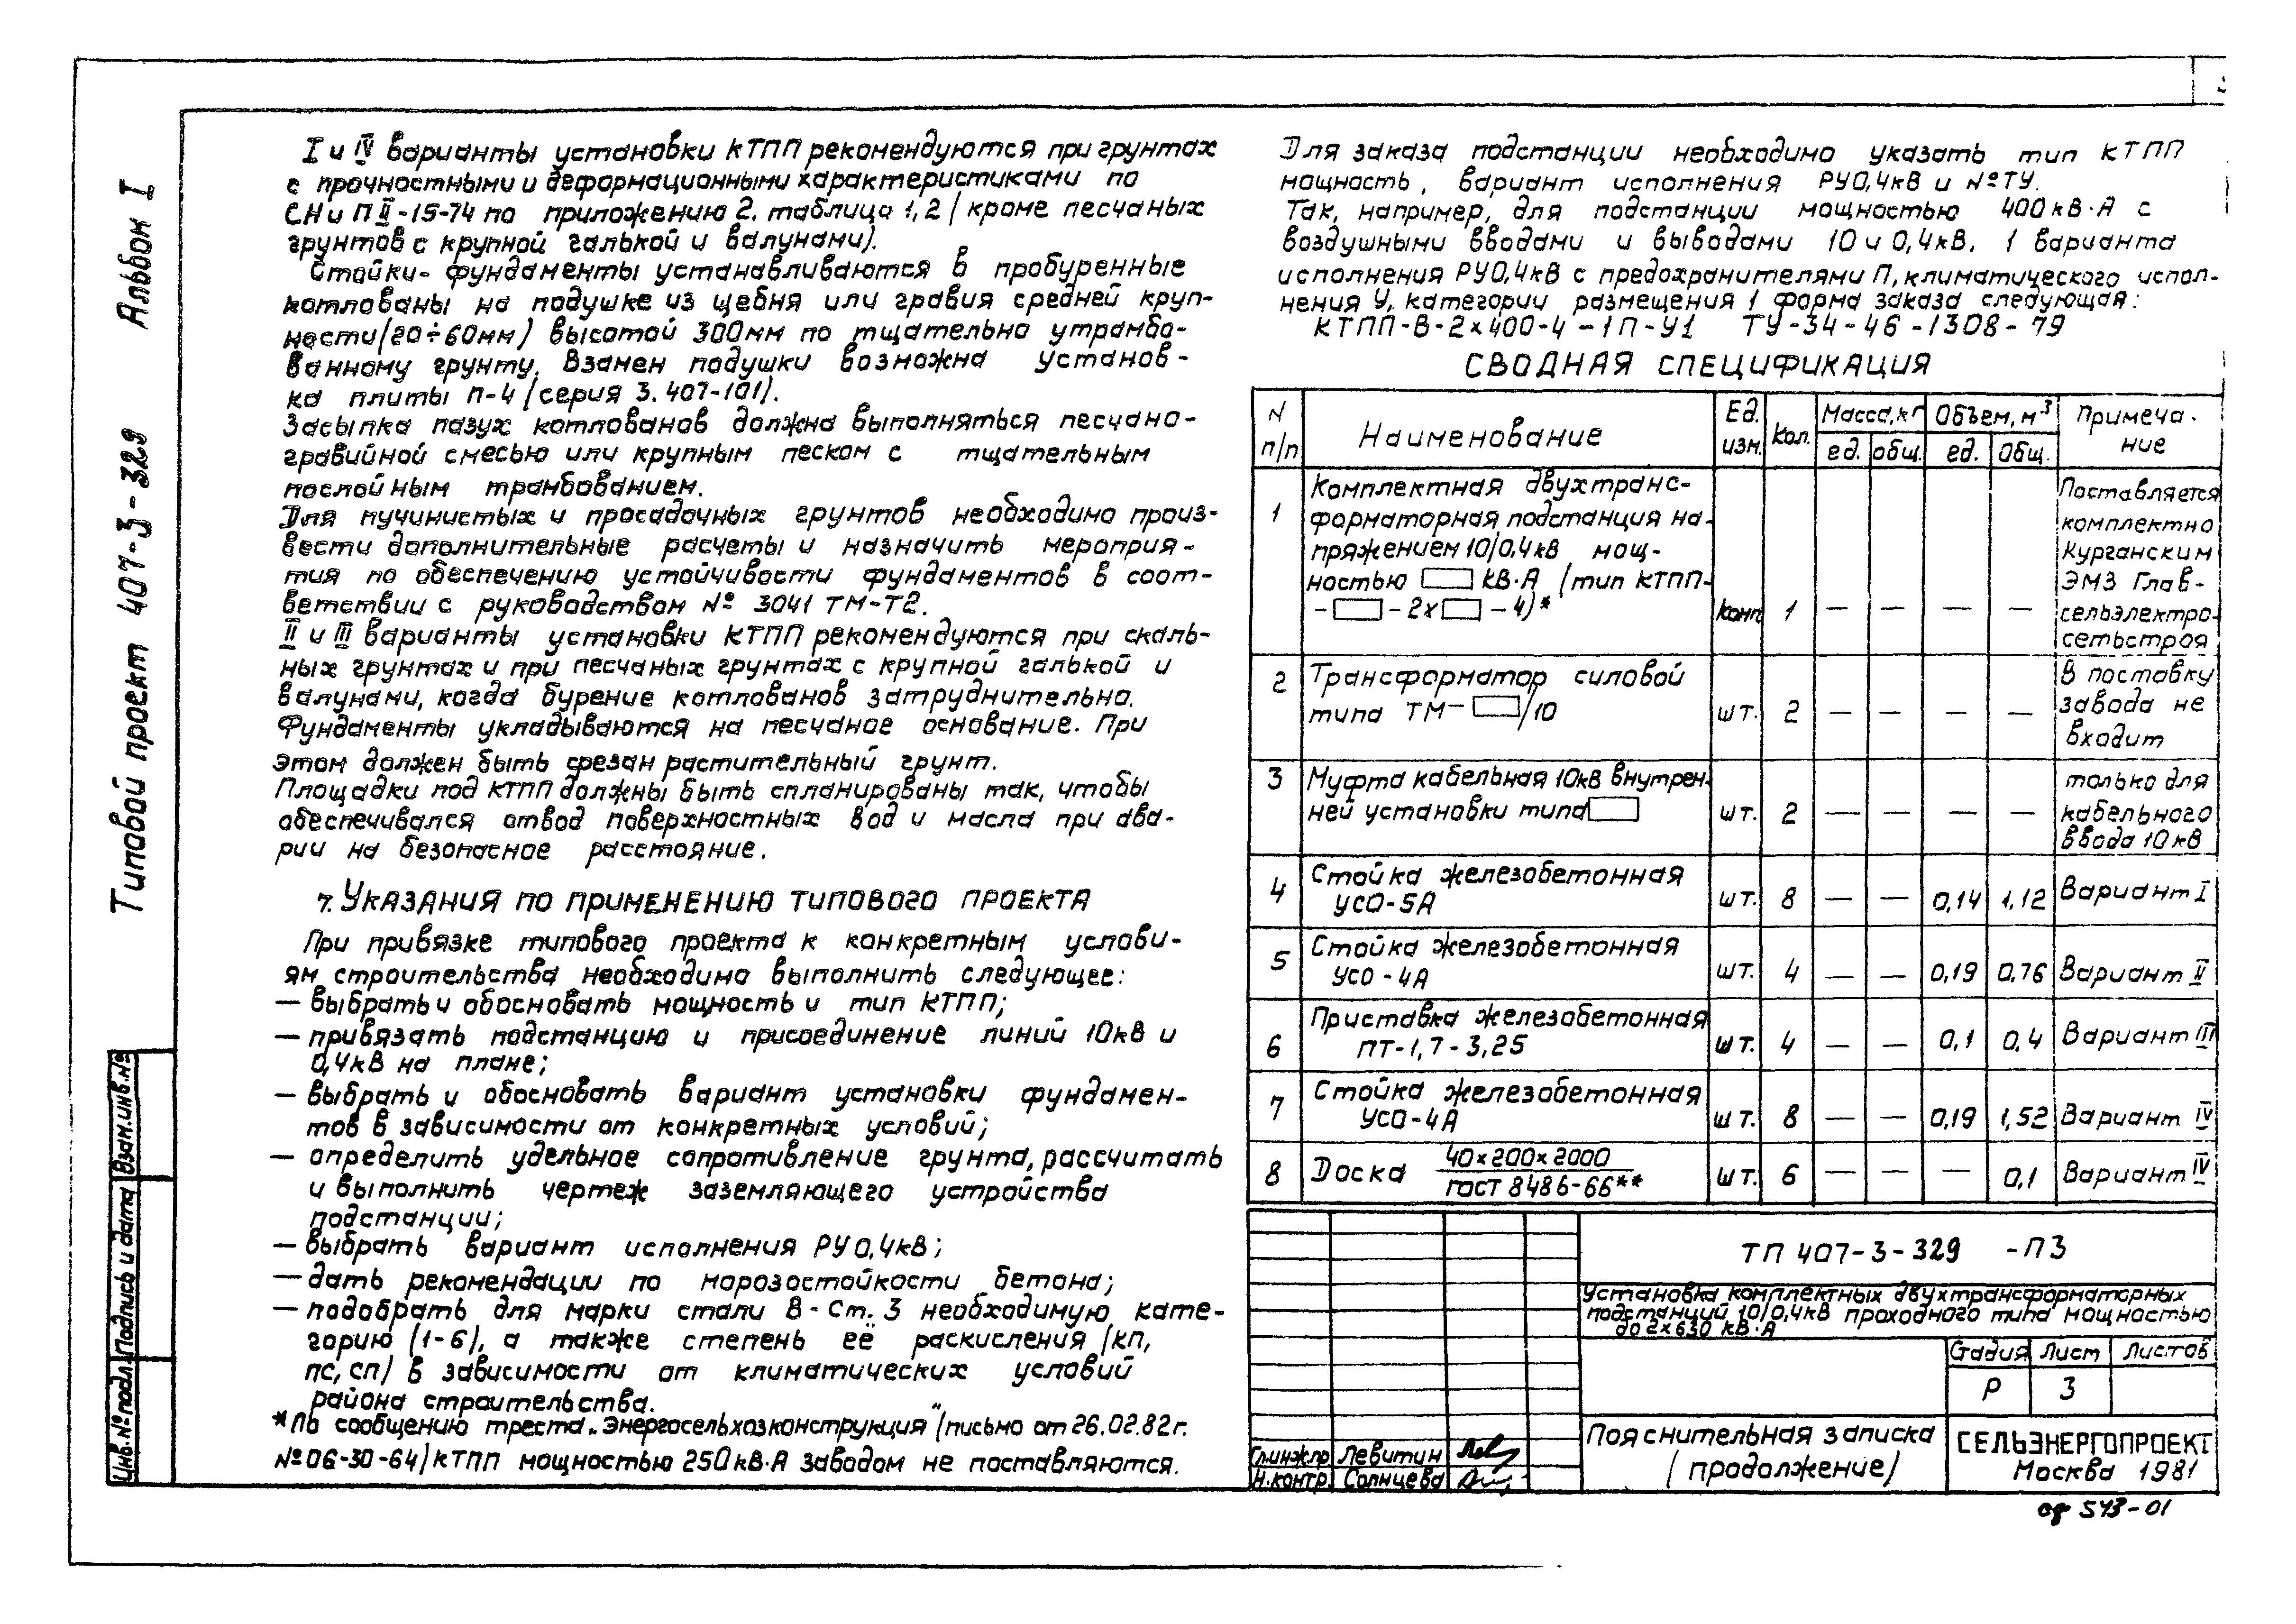 I и IV варианты установки КТПП рекомендуются при грунтах
с прочностными и деформационными характеристиками по
СНиП II-15-74 по приложению 2. таблица 1,2 (кроме песчаных
грунтов с крупной галькой и валунами).
Стойки-фундаменты устанавливаются в пробуренные
котлованы на подушке из щебня или гравия средней круп-
ности (20÷60мм) высотой 300мм по тщательно утрамбо-
ванному грунту. Взамен подушки возможна установ-
ка плиты П-4 (серия 3.407-101).
Засыпка пазух котлованов должна выполняться песчано-
гравийной смесью или крупным песком с тщательным
послойным трамбованием.
Для пучинистых и просадочных грунтов необходимо произ-
вести дополнительные расчеты и назначить мероприя-
тия по обеспечению устойчивости фундаментов в соот-
ветствии с руководством № 3041 ТМ-Т2.
II и III варианты установки КТПП рекомендуются при скаль-
ных грунтах и при песчаных грунтах с крупной галькой и
валунами, когда бурение котлованов затруднительно.
Фундаменты укладываются на песчаное основание. При
этом должен быть срезан растительный грунт.
Площадки под КТПП должны быть спланированы так, чтобы
обеспечивался отвод поверхностных вод и масла при ава-
рии на безопасное расстояние.
7. Указания по применению типового проекта
При привязке типового проекта к конкретным услови-
ям строительства необходимо выполнить следующее:
— выбрать и обосновать мощность и тип КТПП;
— привязать подстанцию и присоединение линий 10кВ и
0,4кВ на плане;
— выбрать и обосновать вариант установки фундамен-
тов в зависимости от конкретных условий;
— определить удельное сопротивление грунта, рассчитать
и выполнить чертеж заземляющего устройства
подстанции;
— выбрать вариант исполнения РУ 0,4кВ;
— дать рекомендации по морозостойкости бетона;
— подобрать для марки стали В-Ст. 3 необходимую кате-
горию (1-6), а также степень её раскисления (кп,
пс, сп) в зависимости от климатических условий
района строительства.
*По сообщению треста „Энергосельхозконструкция" (письмо от 26.02.82г.
№06-30-64) КТПП мощностью 250кВ·А заводом не поставляются.
Для заказа подстанции необходимо указать тип КТПП
мощность, вариант исполнения РУ0,4кВ и №ТУ.
Так, например, для подстанции мощностью 400кВ·А с
воздушными вводами и выводами 10 и 0,4кВ, 1 варианта
исполнения РУ0,4кВ с предохранителями П, климатического испол-
нения У, категории размещения 1 форма заказа следующая:
КТПП-В-2х400-4-1П-У1 ТУ-34-46-1308-79
СВОДНАЯ СПЕЦИФИКАЦИЯ
N п/п Наименование Ед. изм. Кол. Масса, кг Объем, м³ Примеча-
ние
ед. общ. ед. Общ.
1 Комплектная двухтранс-
форматорная подстанция на-
пряжением 10/0,4кВ мощ-
ностью кВ·А (тип КТПП-
- -2х -4)* Комп 1 — — — —
Поставляется
комплектно
Курганским
ЭМЗ Глав-
сельэлектро-
сетьстроя
2 Трансформатор силовой
типа ТМ- /10 шт. 2 — — — —
В поставку
завода не
входит
3 Муфта кабельная 10кВ внутрен-
ней установки типа шт. 2 — — — —
только для
кабельного
ввода 10кВ
4 Стойка железобетонная
УСО-5А шт. 8 — — 0,14 1,12 Вариант I
5 Стойка железобетонная
УСО-4А шт. 4 — — 0,19 0,76 Вариант II
6 Приставка железобетонная
ПТ-1,7-3,25 шт. 4 — — 0,1 0,4 Вариант III
7 Стойка железобетонная
УСО-4А шт. 8 — — 0,19 1,52 Вариант IV
8 Доска 40х200х2000
ГОСТ 8486-66** шт. 6 — — — 0,1 Вариант IV
ТП 407-3-329 -ПЗ
Установка комплектных двухтрансформаторных
подстанций 10/0,4кВ проходного типа мощностью
до 2х630 кВ·А
Стадия Лист Листов
Р 3
Гл.инж.пр. Левитин
Н.контр. Солнцева
Пояснительная записка
(продолжение)
СЕЛЬЭНЕРГОПРОЕКТ
Москва 1981
сф 543-01
Типовой проект 407-3-329 Альбом I
Инв.№подл. Подпись и дата Взам.инв.№